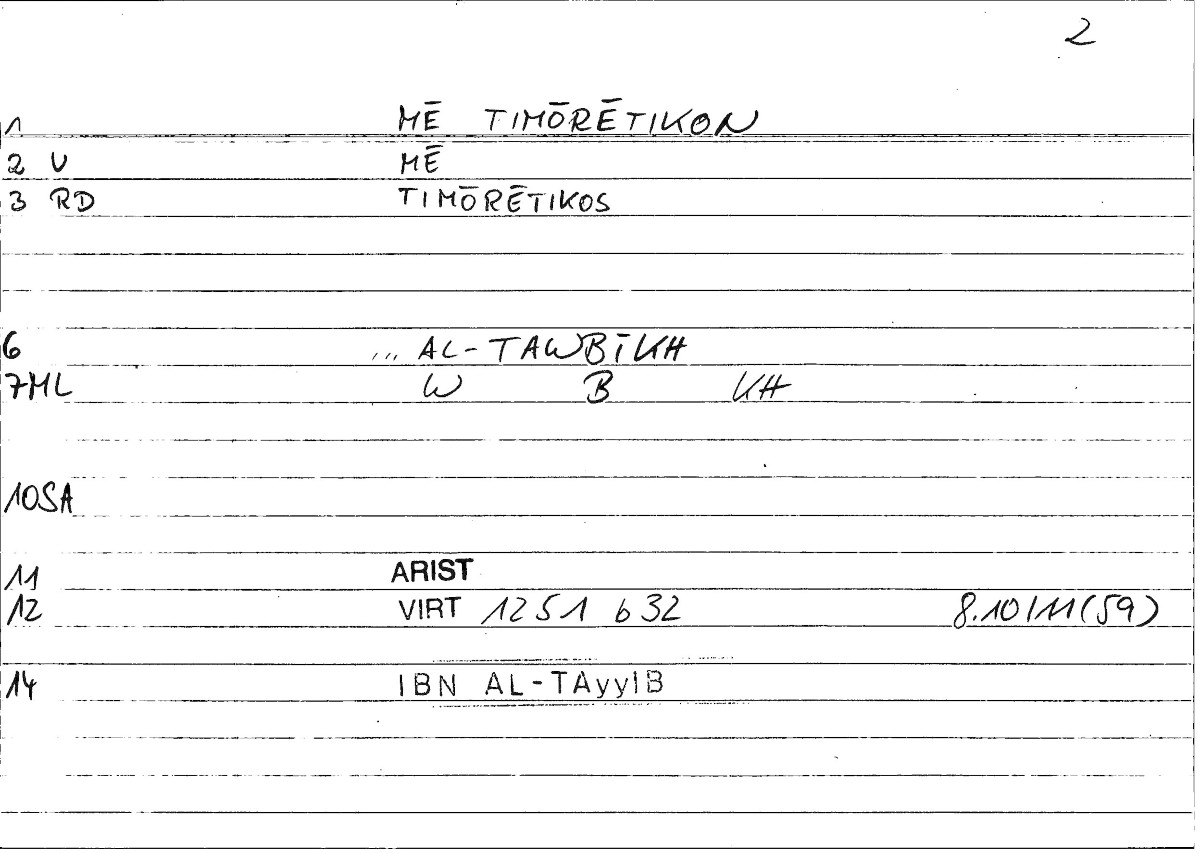 2
1 MĒ TIMŌRĒTIKON
2 V MĒ
3 RD TIMŌRĒTIKOS
6 ... AL-TAWBĪKH
7ML W B KH
10SA
11 ARIST
12 VIRT 1251 b 32 8.10/11(59)
14 IBN AL-TAyyIB